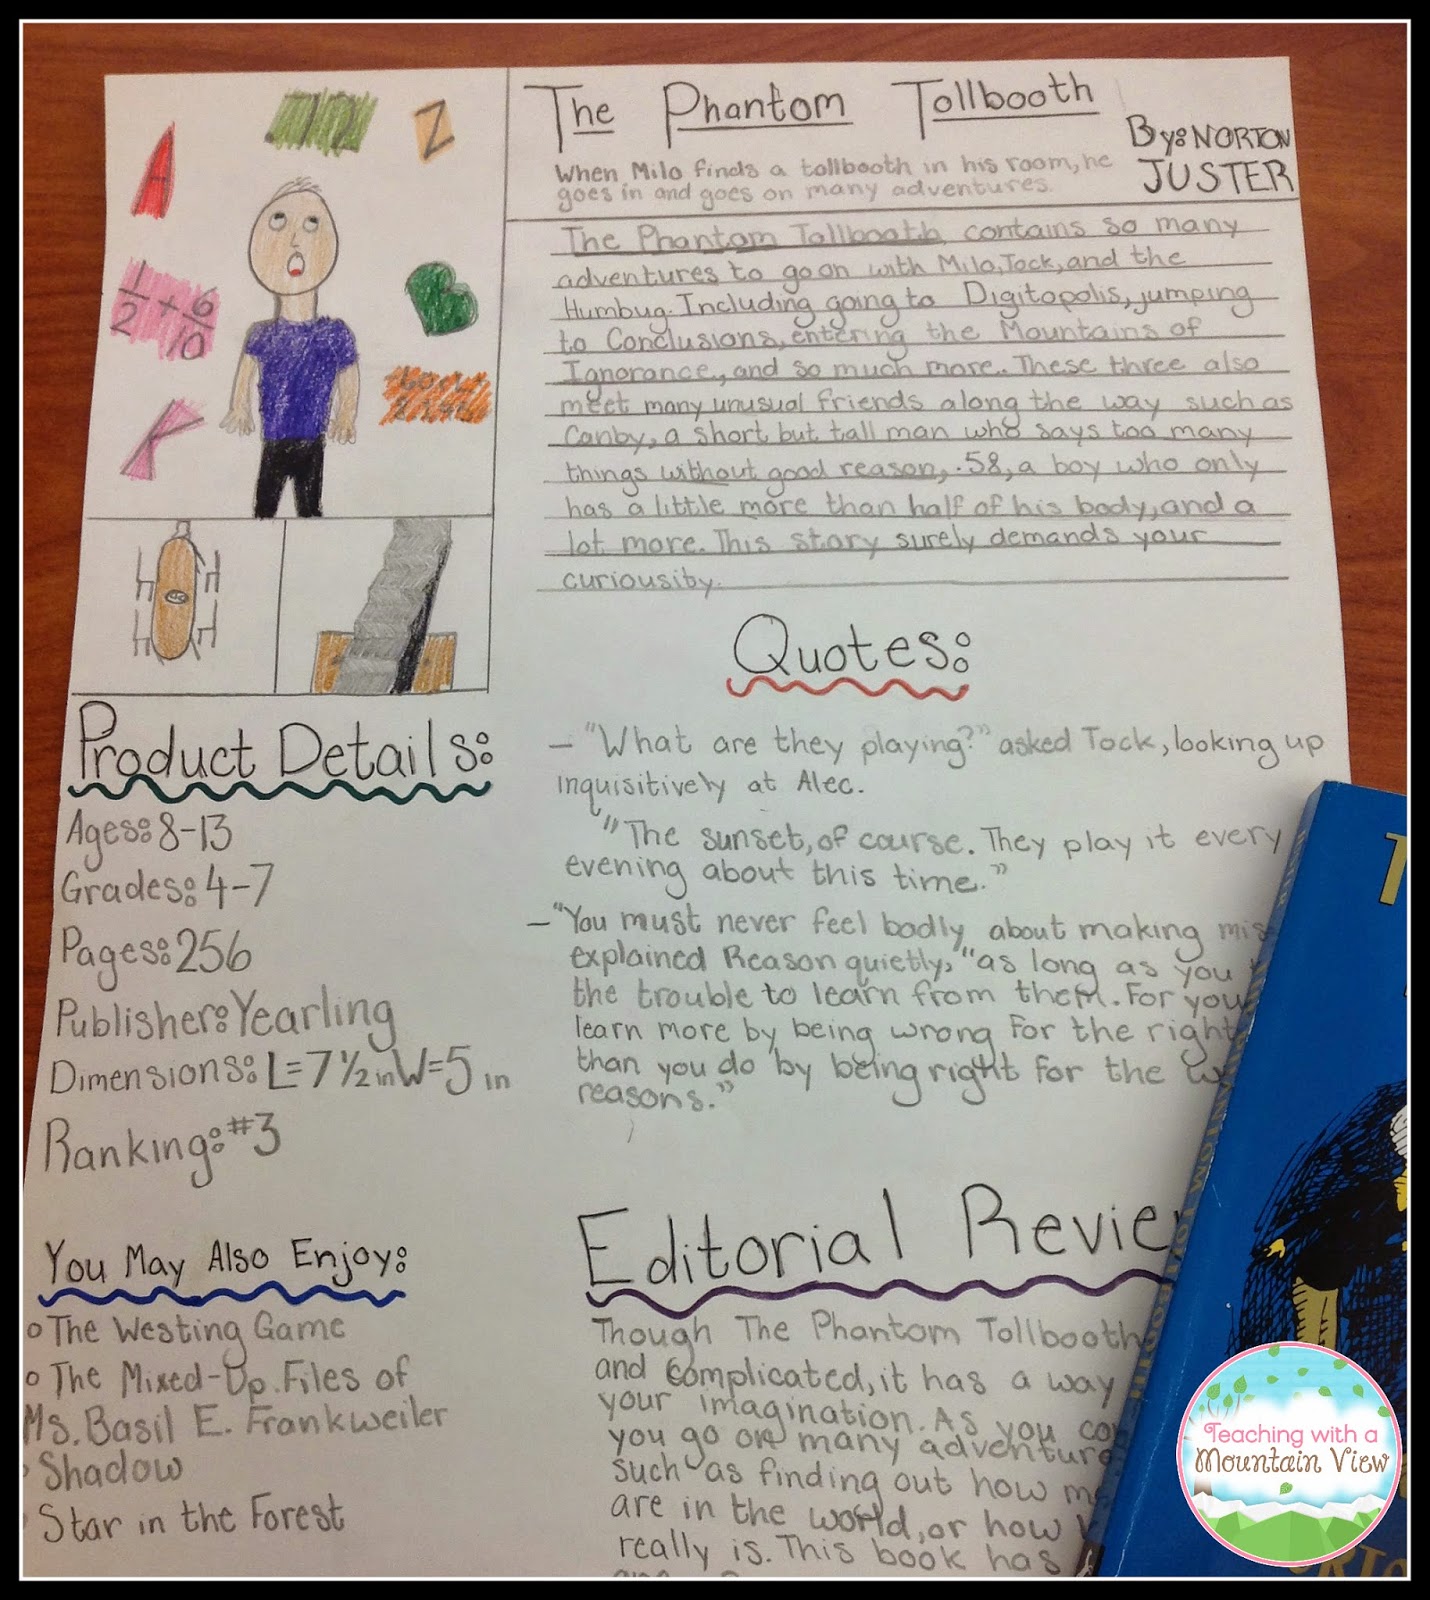 The Phantom Tollbooth
By: NORTON
JUSTER
When Milo finds a tollbooth in his room, he
goes in and goes on many adventures.
A
1/2
Z
1/2 + 6/10
K
The Phantom Tollbooth contains so many
adventures to go on with Milo, Tock, and the
Humbug. Including going to Digitopolis, jumping
to Conclusions, entering the Mountains of
Ignorance, and so much more. These three also
meet many unusual friends along the way such as
Canby, a short but tall man who says too many
things without good reason, .58, a boy who only
has a little more than half of his body, and a
lot more. This story surely demands your
curiousity.
Product Details:
Ages: 8-13
Grades: 4-7
Pages: 256
Publisher: Yearling
Dimensions: L=7 1/2 in W=5 in
Ranking: #3
You May Also Enjoy:
The Westing Game
The Mixed-Up Files of
Ms. Basil E. Frankweiler
Shadow
Star in the Forest
Quotes:
- "What are they playing?" asked Tock, looking up
inquisitively at Alec.
"The sunset, of course. They play it every
evening about this time."
- "You must never feel badly about making mis
explained Reason quietly, "as long as you
the trouble to learn from them. For you
learn more by being wrong for the right
than you do by being right for the w
reasons."
Editorial Revie
Though The Phantom Tollbooth
and complicated, it has a way
your imagination. As you co
you go on many adventure
such as finding out how m
are in the world, or how
really is. This book has
Teaching with a
Mountain View